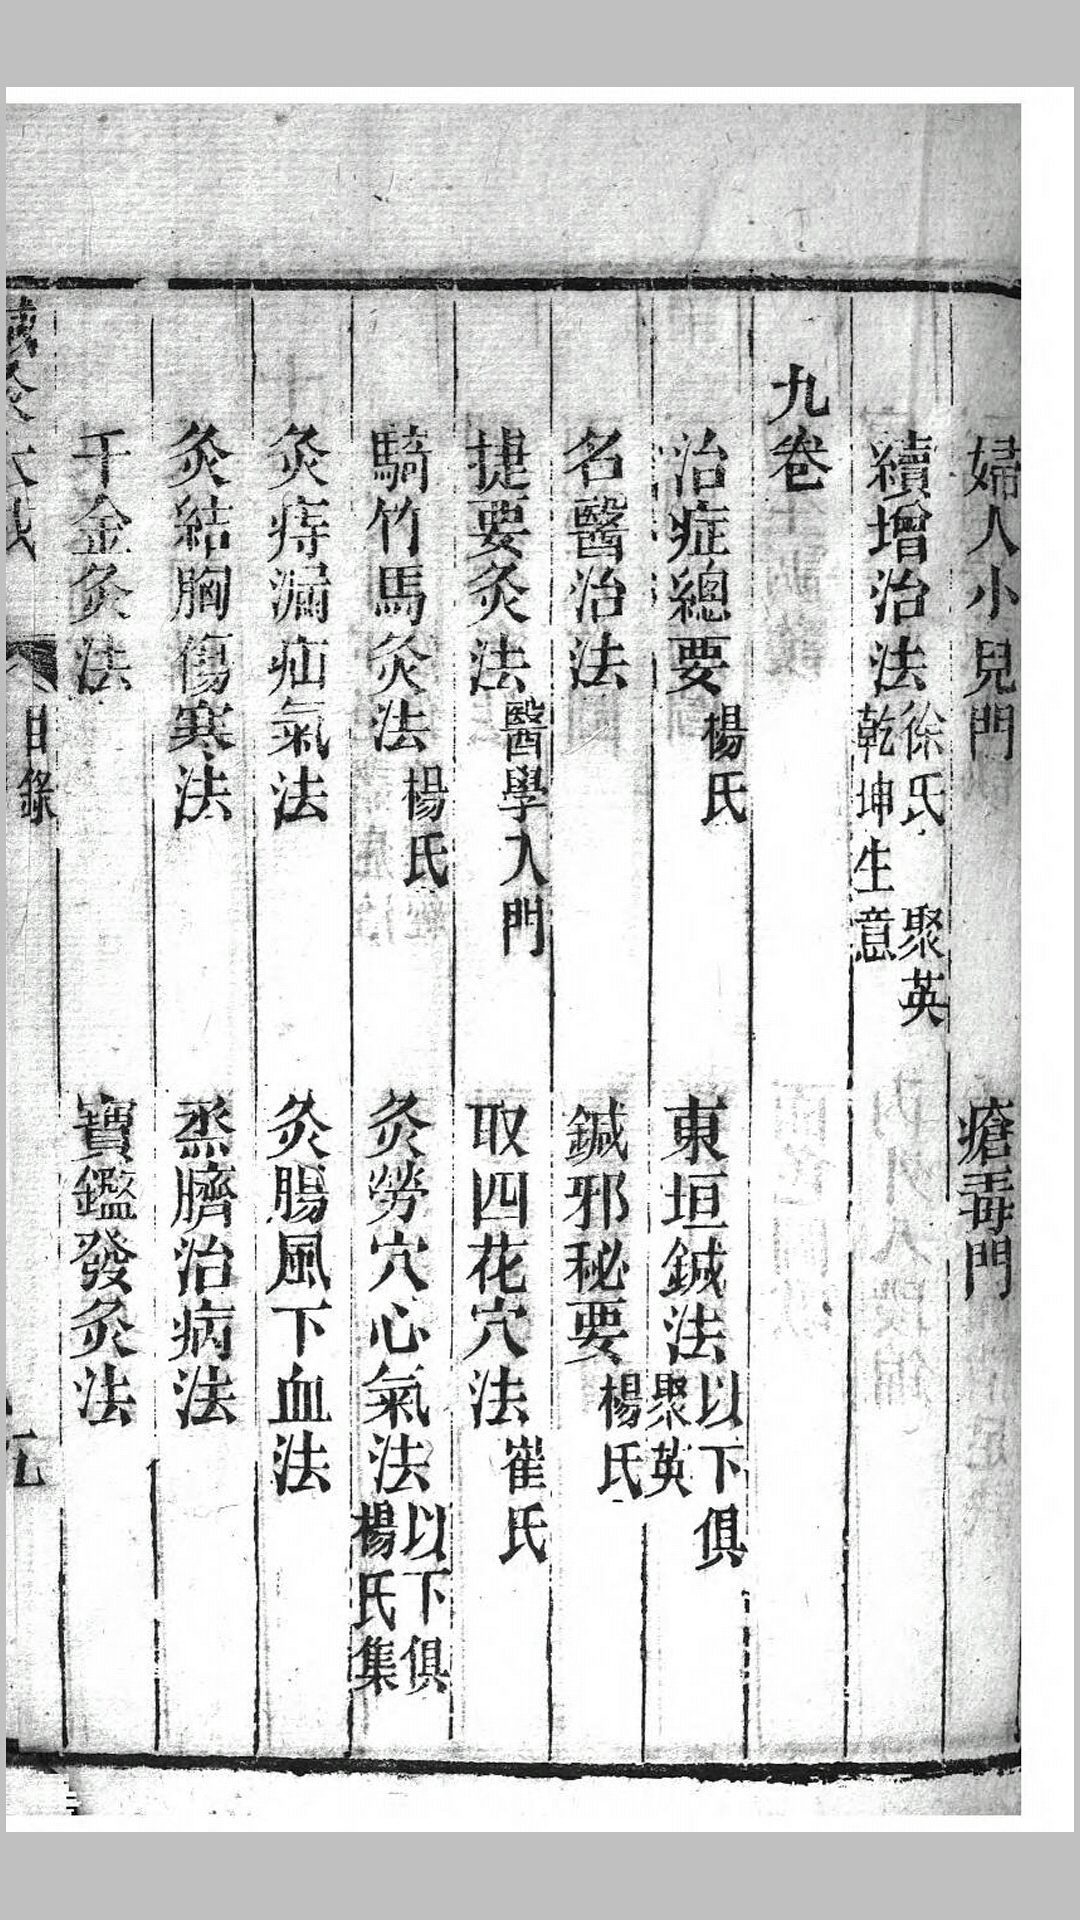 婦人小兒門　瘡毒門
續增治法　徐氏　聚英　乾坤生意
九卷
治症總要　楊氏　東垣鍼法　以下俱聚英
名醫治法　鍼邪秘要　楊氏
捷要灸法　醫學入門　取四花穴法　崔氏
騎竹馬灸法　楊氏　灸勞穴心氣法　以下俱楊氏集
灸痔漏疝氣法　灸腸風下血法
灸結胸傷寒法　烝臍治病法
千金灸法　寶鑑發灸法
目錄